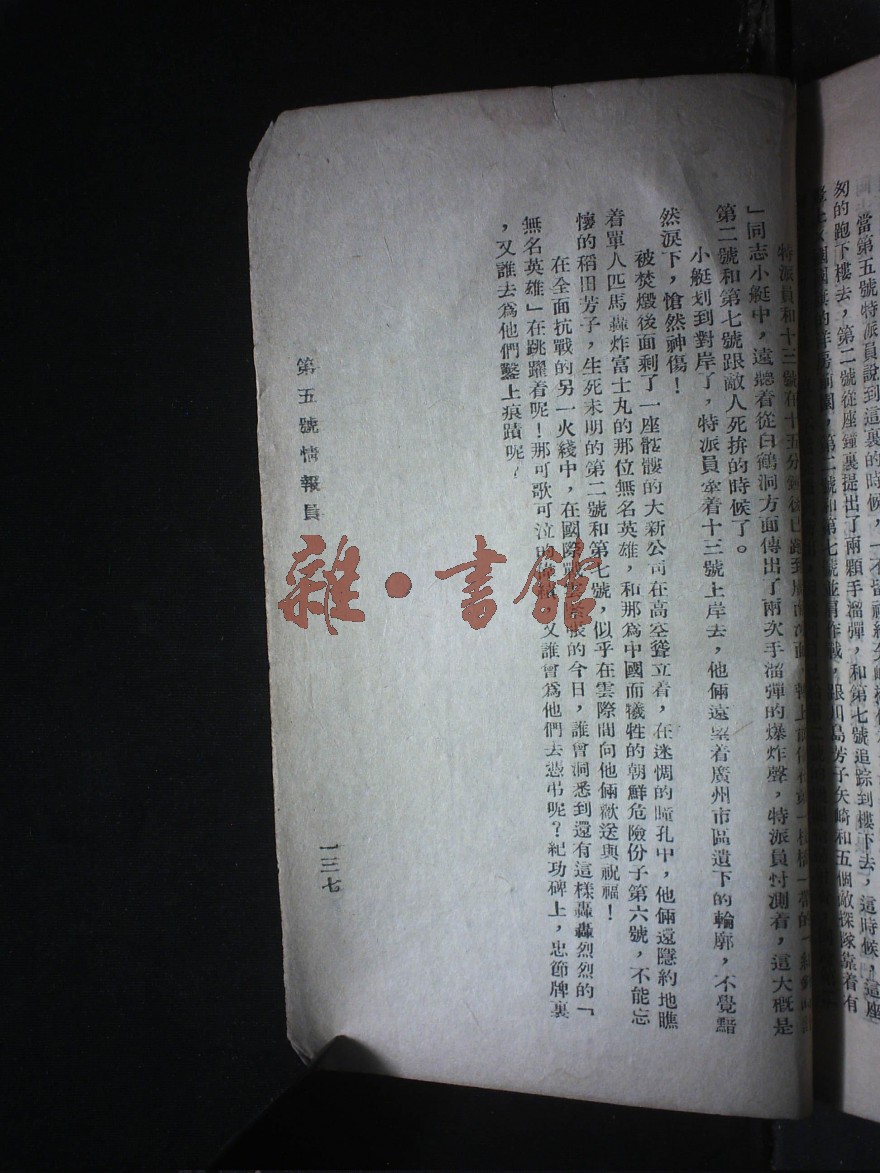 當第五號特派員說到這裏的時候，一不留神
匆的跑下樓去，第二號從座鐘裏提出了兩顆手溜彈，和第七號追踪到樓下去，這時候，這座
第二號和第七號並肩作戰，跟川島芳子矢崎和五個敵探隊靠着有
特派員和十三號在十五分鐘後已跑到
」同志小艇中，遠聽着從白鶴洞方面傳出了兩次手溜彈的爆炸聲，特派員忖測着，這大概是
第二號和第七號跟敵人死拚的時候了。
小艇划到對岸了，特派員牽着十三號上岸去，他倆遠望着廣州市區遺下的輪廓，不覺黯
然淚下，愴然神傷！
被焚燬後面剩了一座骷髏的大新公司在高空聳立着，在迷惘的瞳孔中，他倆還隱約地瞧
着單人匹馬轟炸富士丸的那位無名英雄，和那爲中國而犧牲的朝鮮危險份子第六號，不能忘
懷的稻田芳子，生死未明的第二號和第七號，似乎在雲際間向他倆歡送與祝福！
在全面抗戰的另一火綫中，在國際戰的今日，誰會洞悉到還有這樣轟轟烈烈的「
無名英雄」在跳躍着呢！那可歌可泣的，又誰會爲他們去憑弔呢？紀功碑上，忠節牌裏
，又誰去爲他們鑿上痕蹟呢？
第五號情報員
一三七
雜・書館